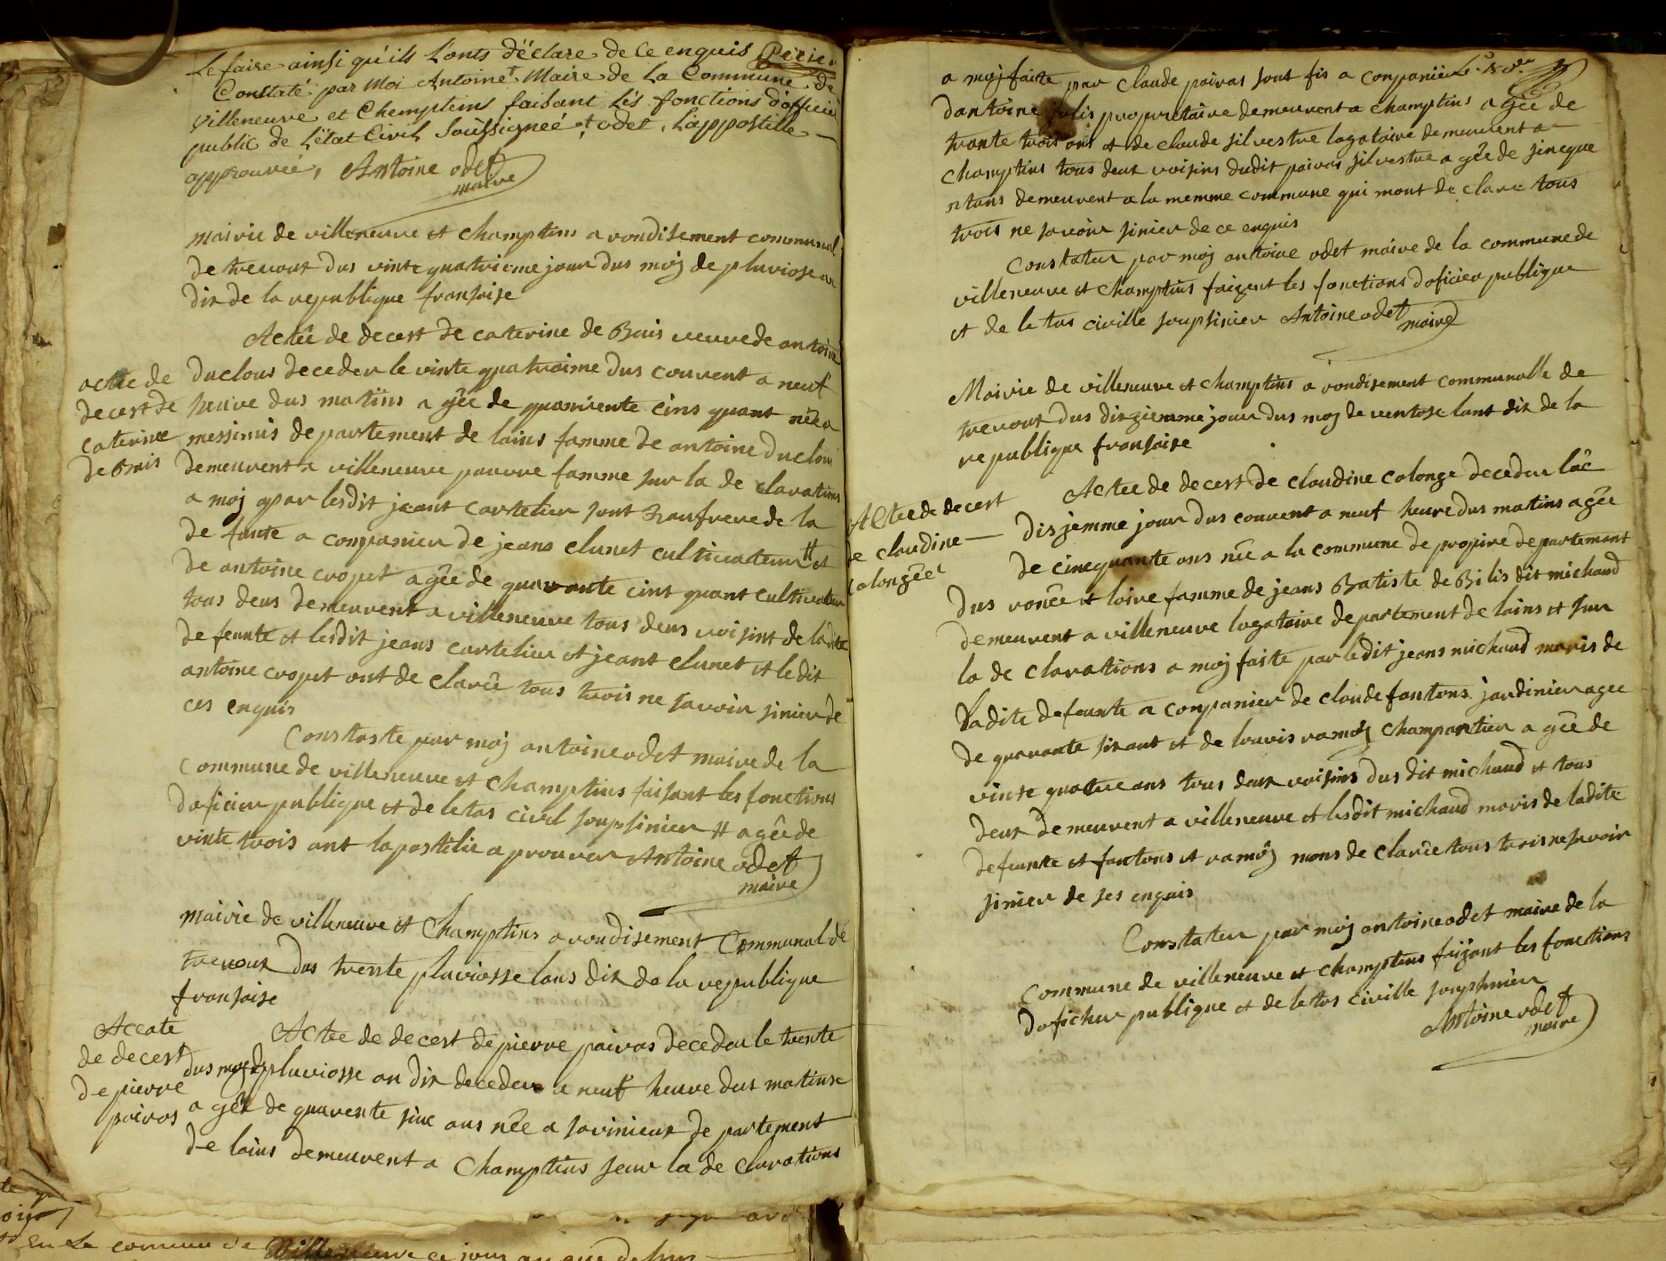 Le faire ainsi qu'ils L'onts déclaré de Ce enquis
Constaté par Moi Antoine † Maire de La Commune de
Villeneuve et Chempteins faisant Lés fonctions d'officier
public de L'état Civil Soussigneé † odet, L'appostille
approuveé, Antoine odet
maire
mairie de villeneuve et champtins a rondisement communal
de trevout dus vinte quatrieme jour dus moj de pluviose an
dix de la republique fransaise
Actée de decest de caterine de Bais veuve de antoine
actée de
decest de
caterine
de Bais
duclous deceder le vinte quatraime dus couvent a neuf
heuve dus matiins a gêe de quarvente cins quant née a
messimis departement de lains famme de antoine duclou
demeuvent a villeneuve pauvre famme sur la de clarations
a moj par lesdit jeant cartelier sont Baufrere de la
de funte a conpanier de jeans clunet cultivateur # et
de antoine cropet a gêe de quavante cins quant cultivateur
tous deus demeuvent a villeneuve tous deus voisint de ladite
defeunte et lesdit jeans cartelier et jeant clunet et ledit
antoine cropet ont de clarée tous trois ne savoir sinier de
ces enquis
Constaste par moj antoine odet maire de la
commune de villeneuve et champtins faisant les fonctions
doficier publique et de letas civil soupsinier # agêe de
vinte trois ant lapostelie a prouver Antoine odet
maire
mairie de villeneuve et Champtins a rondisement Communal de
trevout dus trente pluviosse lans dix de la republique
fransaise
Accate
de decest
de pierre
paivas
Actee de decest de pierre paivas deceder le trente
dus moj de pluviosse an dix deceder a neuf heuve dus matins
a gêe de quavente sinc ans nêe a savinieux de partement
de lains demeuvent a Champtins seur la de clarations
a moj faite par claude paivas sont fis a conpanier
dantoine jolis propriétaire demeuvent a champtins a gêe de
trante trois ans et de claude silvestre logataire demeuvent a
champtins tous deux voisins dudit paivas silvestre a gêe de sineque
ntans demeuvent a la memme commune qui mont de clare tous
trois ne savoir sinier de ce enquis
Constater par moj antoine odet maire de la commune de
villeneuve et champtins faizent les fonctions doficier publique
et de le tas civille soupsinier Antoine odet
maire
Mairie de villeneuve et champtins a rondisement communalle de
trevout dus dixziemme jour dus moj de ventose lant dix de la
republique fransaise
Actée de decest
de claudine
colongêe
Actee de decest de claudine colonge deceder lâe
disjemme jour dus couvent a neuf heure dus matins agêe
de cinequante ans née a la commune de propire departemant
dus ronêe et loire famme de jeans Batiste de Bilis dit michaud
demeuvent a villeneuve logataire departement de lains et sur
la de clarations a moj faite par ledit jeans michaud maris de
ladite defeunte a conpanier de claude fantons jardinier agee
de quavante sixant et de louvis ramêj champantier a gêe de
vinte quatre ans tous deux voisins dus dit michaud et tous
deux demeuvent a villeneuve et lesdit michaud maris de ladite
defeunte et fantons et ramêj mons de clarêe tous trois ne savoir
sinier de ses enquis
Constater par moj antoine odet maire de la
Commune de villeneuve et champtins faizant les fonctions
doficher publique et de letas civille soupsinier
Antoine odet
maire